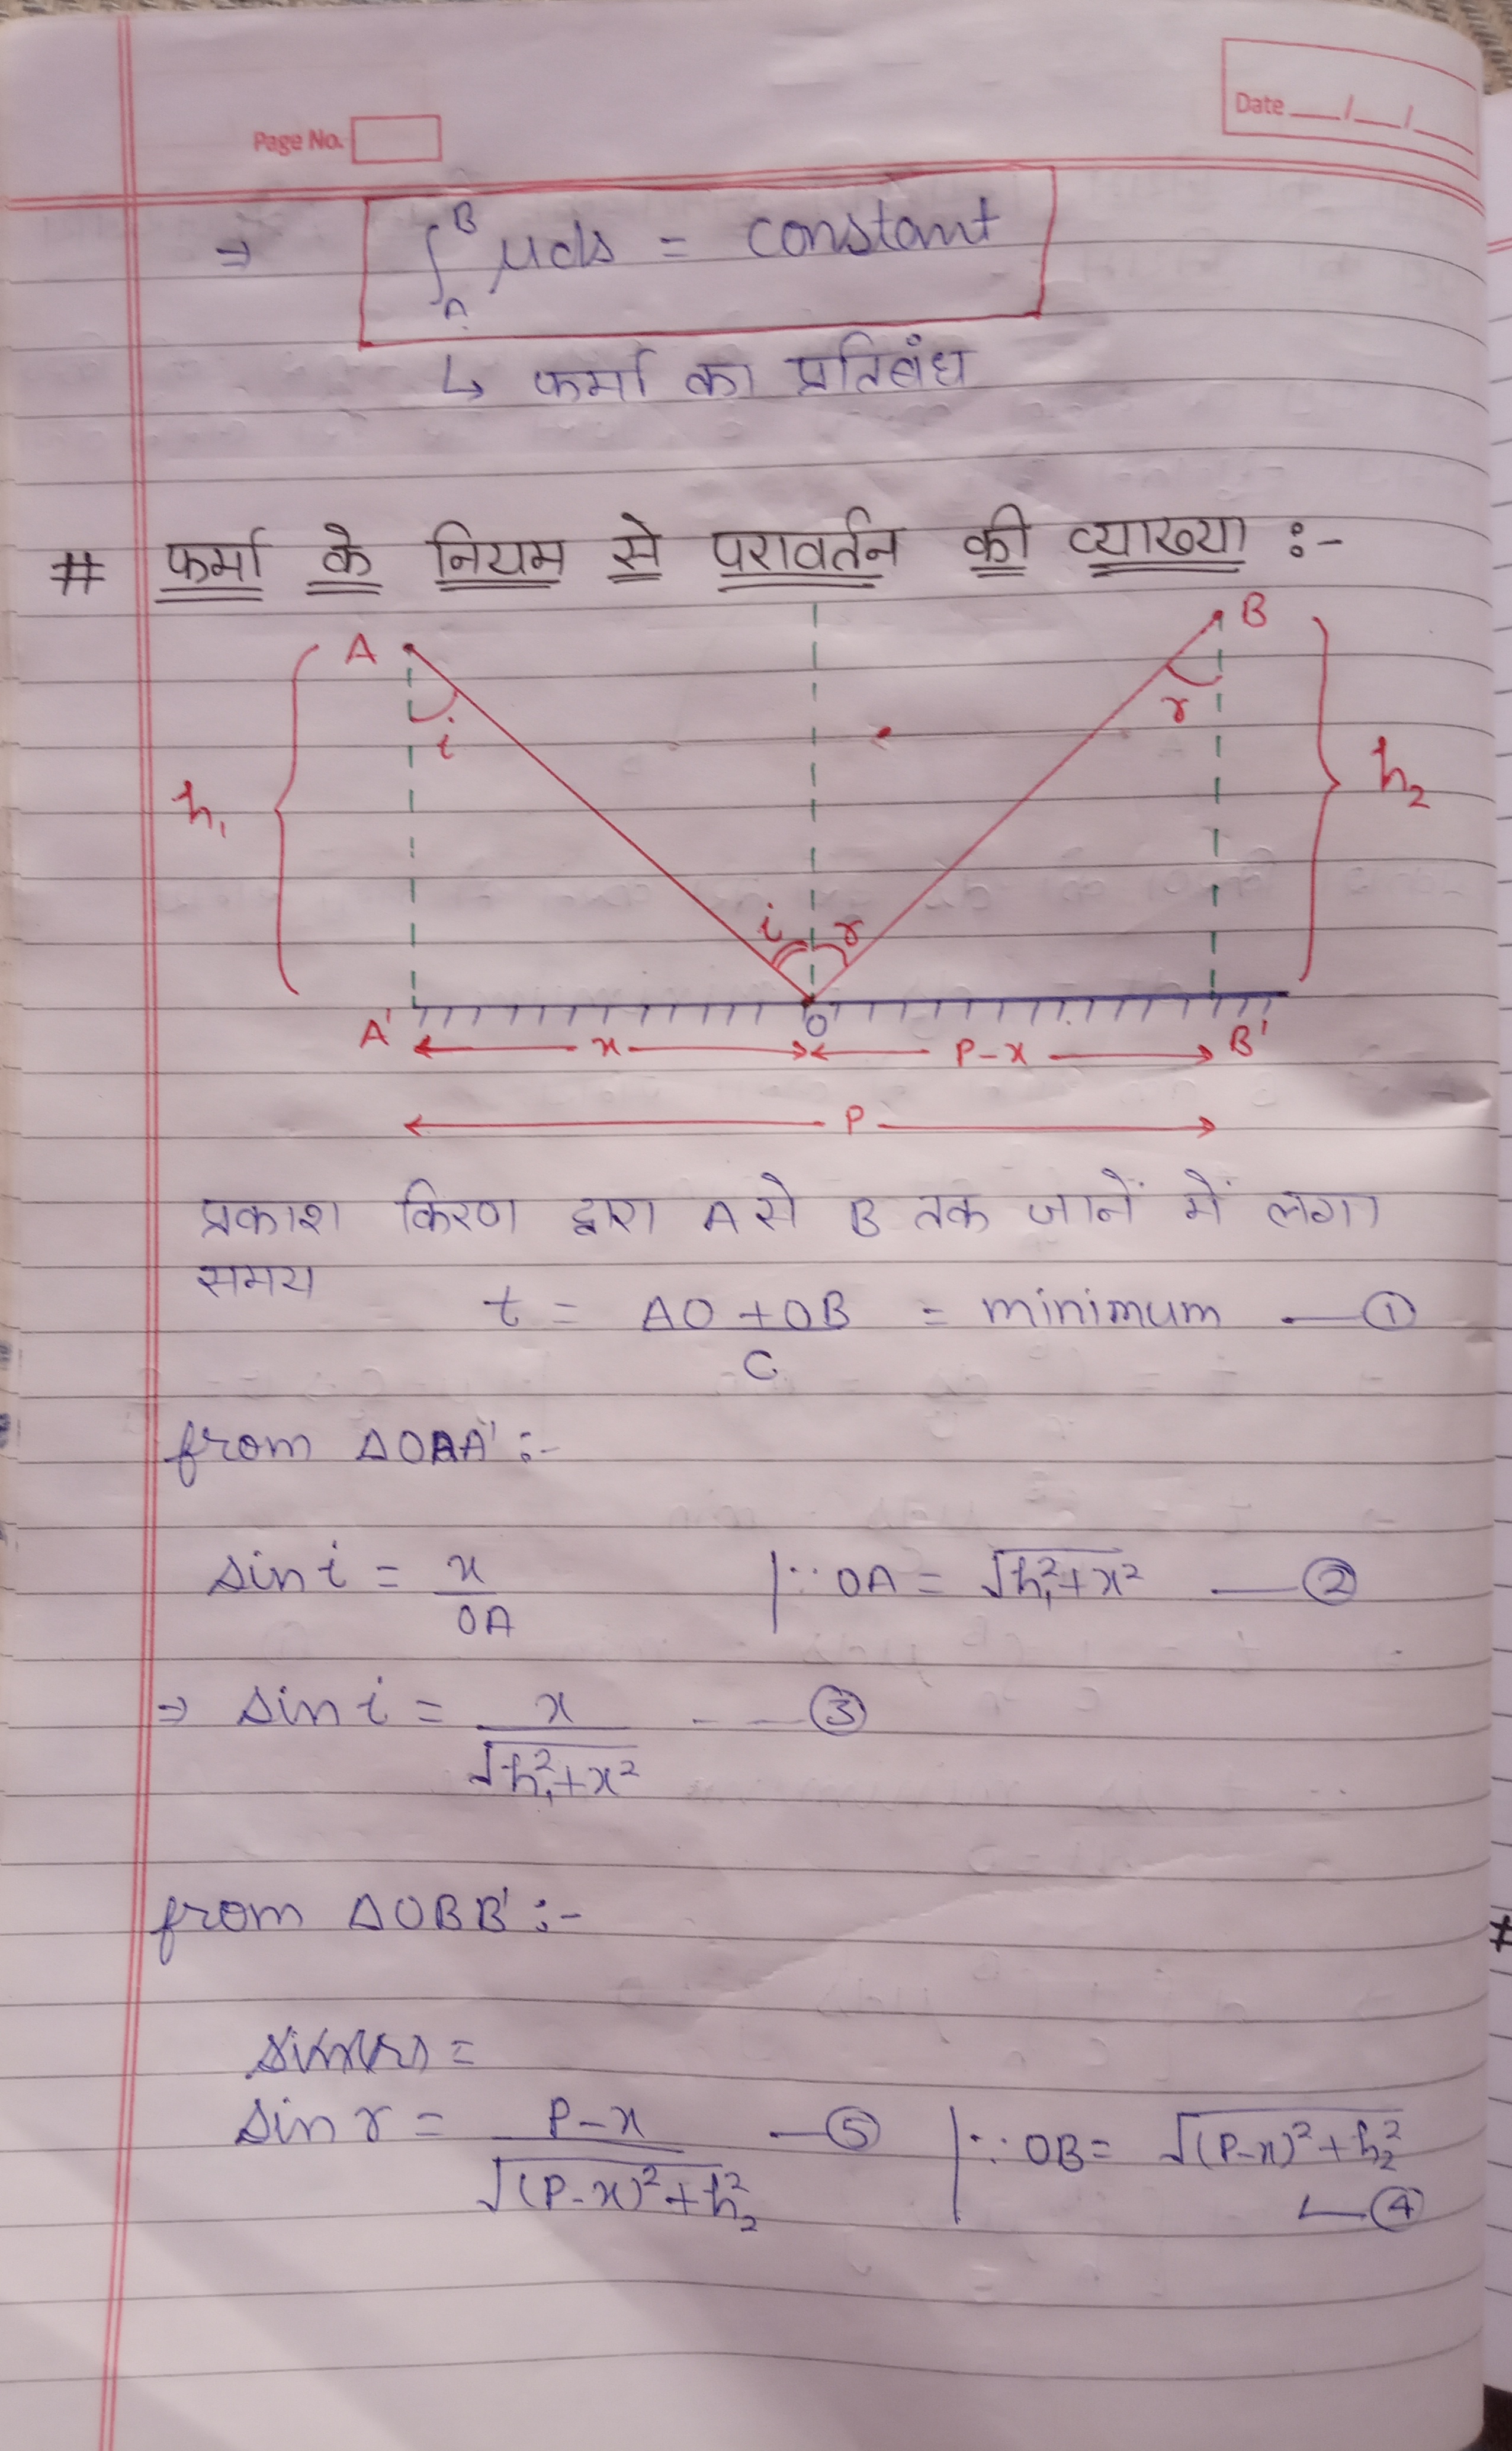 Page No.
Date __/__/__
⇒ ∫_A^B μds = constant
↳ फर्मा का प्रतिबंध
# फर्मा के नियम से परावर्तन की व्याख्या :-
A B
i r
h₁ h₂
i r
A' O B'
x P-x
P
प्रकाश किरण द्वारा A से B तक जानें में लगा
समय t = (AO + OB)/C = minimum —①
from ΔOAA' :-
sin i = x/OA | ∵ OA = √(h₁²+x²) —②
⇒ sin i = x/√(h₁²+x²) - - —③
from ΔOBB' :-
sin r = (P-x)/√((P-x)²+h₂²) —⑤ | ∵ OB = √((P-x)²+h₂²)
—④